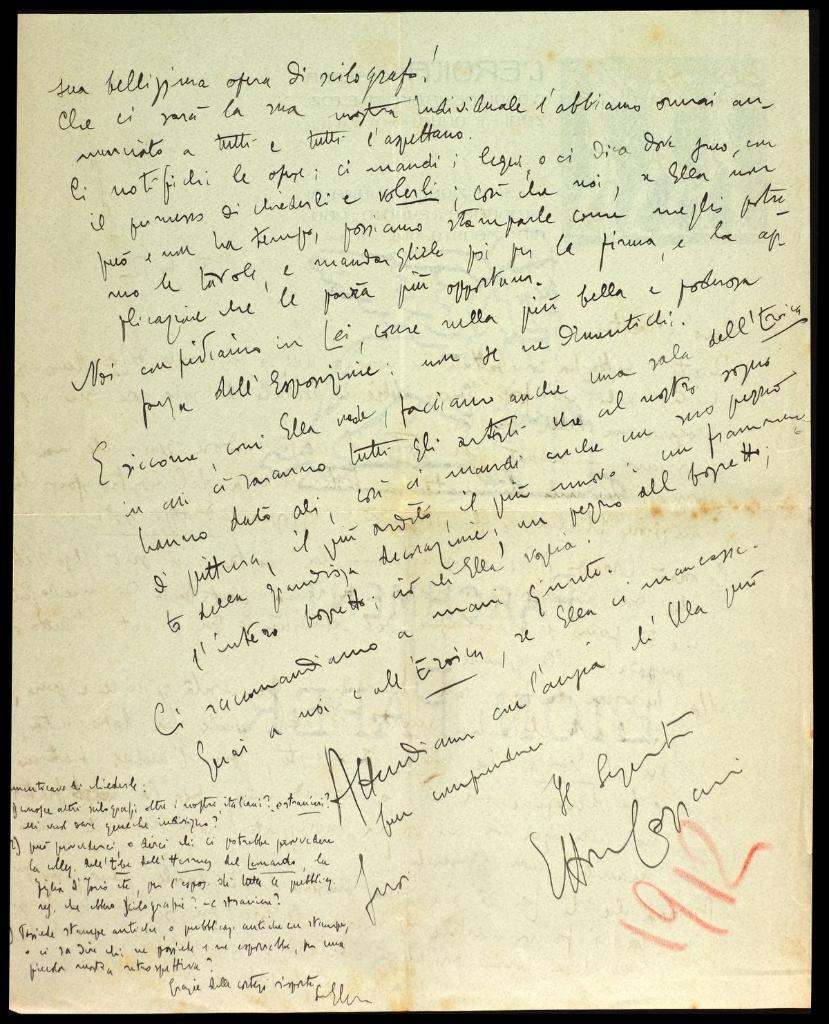 sua bellissima opera di xilografo!
Che ci sarà la sua mostra individuale l'abbiamo ormai an-
nunciato a tutti e tutti l'aspettano.
Ci notifichi le opere; ci mandi i legni, o ci dica dove sono, con
il permesso di chiederli e volerli; così che noi, se Ella non
può e non ha tempo, possiamo stamparle come meglio potre
mo le tavole, e mandargliele poi per la firma, e la ap-
plicazione che le parrà più opportuna.
Noi confidiamo in Lei, come nella più bella e poderosa
forza dell'Esposizione: non se ne dimentichi.
E siccome, come Ella vede, facciamo anche una sala dell'Eroica
in cui ci saranno tutti gli artisti che al nostro sogno
hanno dato ali, così ci mandi anche un suo pezzo
di pittura, il più ardito, il più nuovo: un frammen
to della grandiosa decorazione; un pezzo del bozzetto;
l'intero bozzetto; ciò che Ella voglia.
Ci raccomandiamo a mani giunte.
Guai a noi e all'Eroica, se Ella ci mancasse.
Attendiamo con l'ansia ch'Ella può
ben comprendere
Suo
Il Segretario
Ettore Cozzani
1912
menticavo di chiederle:
conosce altri xilografi oltre i nostri italiani? e stranieri?
mi vuol dare qualche indirizzo?
2) può provvederci, o dirci chi ci potrebbe provvedere
la collez. dell'Ebe dell'Hermes del Leonardo, la
Figlia d'Jorio etc, per l'espos. di tutte le pubblicaz
che ebbero xilografie? - e straniere?
Possiede stampe antiche, o pubblicaz. antiche con stampe,
o ci sa dire chi ne possiede e ne esporrebbe, per una
piccola mostra retrospettiva?
Grazie della cortese risposta